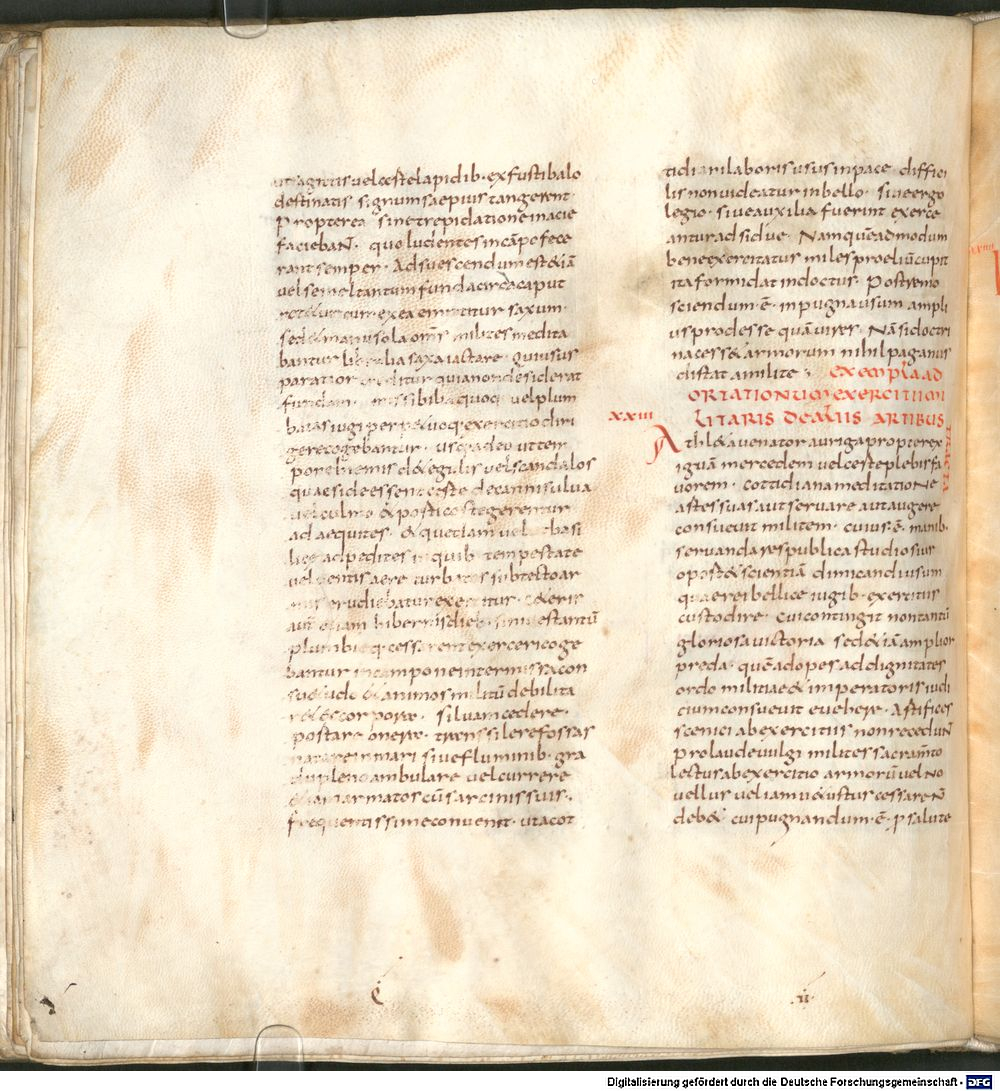 ut sagittis vel certe lapidib· ex fustibalo
destinatis signum saepius tangerent
Propterea sine trepidatione in acie
faciebaN̄· quo ludentes in cāpo fece
rant semper· Adsuescendum est & iā
vel semel tantum funda circa caput
rotetur cum· ex ea emittitur saxum·
sed & manu sola om̄s milites medita
bantur libralia saxa iactare· qui usus
paratior creditur quia non desiderat
fundam· missibilib· quoq· vel plum
batas iugi perpetuoq· exercitio diri
gere cogebantur· usq· adeo ut tem
pore hiemis de tegulis vel scandulis
quae si deessent certe de cannis ulua
vel culmo et porticos tegerentur
ad aequites· & quaedam vel basi
licae ad pedites in quib· tempestate
vel ventis aere turbatos sub tecto ar
mis erudiebatur exercitus· ceteris
aut̄ etiam hibernis dieb· si nives tantū
pluviaeq· cessarent exerceri coge
bantur in campo ne intermissa con
suetudo & animos militū debilita
ret & corporae· silvam cedere·
portare onerae· transsilere fossas
natare in mari sive fluminib· gra
du pleno ambulare vel currere
etiam armatos cū sarcinis suis·
frequentissime convenit· ut a cot
tidiani laboris usus in pace diffici
lis non videatur in bello· sive ergo
legio· sive auxilia fuerint exerce
antur adsidue· Nam quēadmodum
bene exercitatus miles proeliū cupit
ita formidat indoctus· Postremo
sciendum ē· in pugna usum ampli
us prodesse quā vires· Nā si doctri
na cesset armorum nihil paganus
distat a milite ;
exempla ad
ORTATIONUM EXERCITII MI
XXIIII LITARIS DE ALIIS ARTIBUS
TRACTA
Athleta venator auriga propter ex
iguā mercedem vel certe plebis fa
vorem· cottidiana meditatioNe
artes suas aut servare aut augere
consuevit militem· cuius ē· manib·
servanda respublica studiosius
oportet & scientiā dimicandi usum
quae rei bellice iugib· exercitiis
custodire· cui contingit non tantū
gloriosa victoria sed & iā amplior
preda· quē ad opes ad dignitates
ordo militiae & imperatoris iudi
cium consuevit evehere· Artifices
scenici ab exercitiis non receduN̄
pro laude vulgi miles sacram̄to
lectus ab exercitio armorū vel No
vellus vel iam vetustus cessare N̄
debet cui pugnandum· ē· p salute
C
.ii.
XXIIII
Digitalisierung gefördert durch die Deutsche Forschungsgemeinschaft - DFG